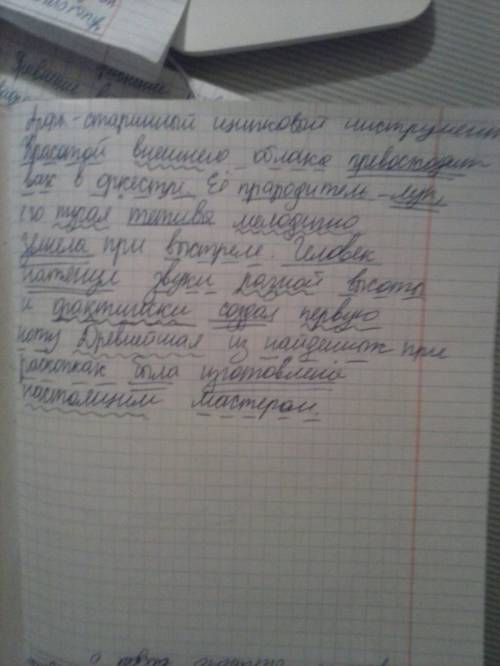 Арфа-старинный щипковой инструмент
Красотой внешнего облика превосходит
в оркестре. Её прародитель-лук,
его тугая тетива мелодично
звенела при выстреле. Человек
звуки разной высоты
и фактически создал первую
ноту Древнейшая из найденых при
раскопках была изготовлена
настоящим мастером.